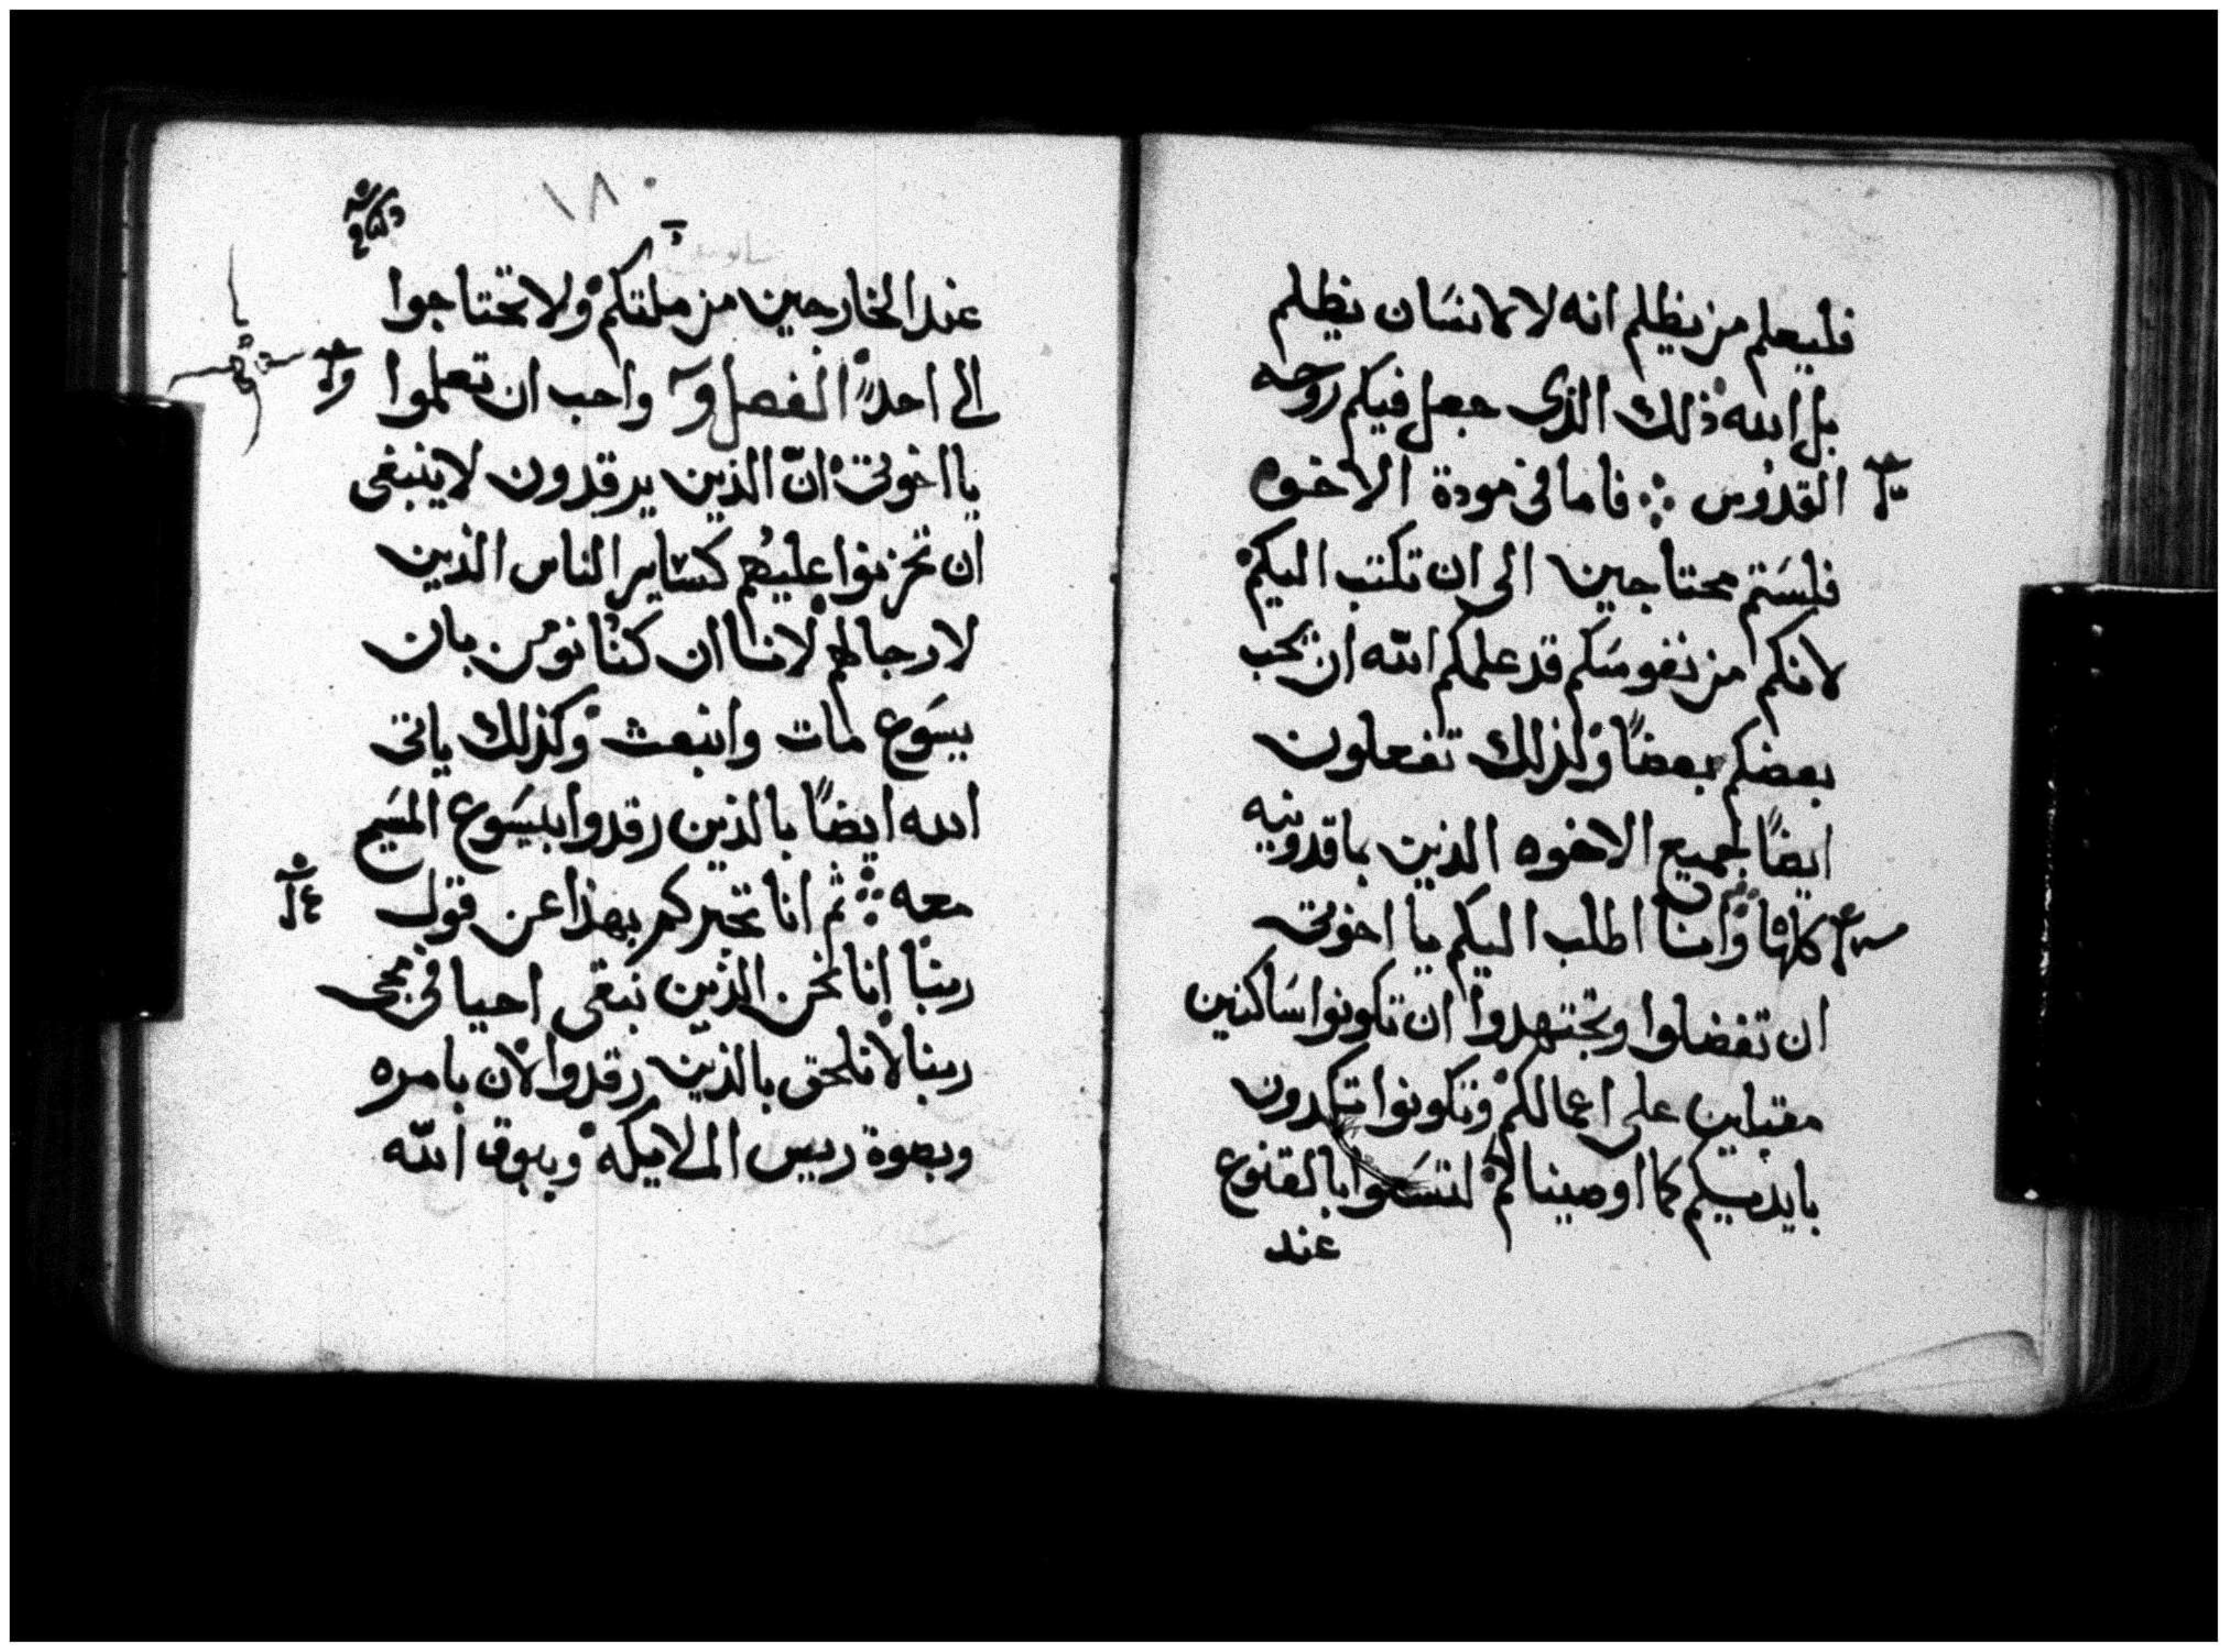 فليعلم من يظلم انه لا لانسَان يظلم
بل الله ذلك الذي جعل فيكم روحه
القدوس ܀ فاما في مودة الاخوه
فلسَتم محتاجين الى ان تكتب اليكم
لانكم من نفوسَكم قد علمكم الله ان يحب
بعضكم بعضًا وكذلك تفعلون
ايضًا لجميع الاخوه الذين بماقدونيه
كلها وانا اطلب اليكم يا اخوتى
ان تفضلوا وتجتهدوا ان تكونوا سَاكنين
مقبلين على اعمالكم وتكونوا تتكدون
بايديكم كما اوصيناكم لتسَعوا بالقنوع
عند
١٨٠
عند الخارجين من ملتكم ولا تحتاجوا
الى احد الفصل واحب ان تعلموا
يا اخوتى انّ الذين يرقدون لا ينبغى
ان تحزنوا عليهم كسَاير الناس الذين
لا رجا لهم لاننا ان كنُا نومن بان
يسَوع مات وانبعث وكذلك ياتى
الله ايضًا بالذين رقدوا بيسَوع المسَيح
معه ܀ ثم انا نخبركم بهذا عن قول
ربنا انا نحن الذين نبقى احيا فى مجى
ربنا لا نلحق بالذين رقدوا لان بامره
وبصوة رييس الملايكه وببوق الله